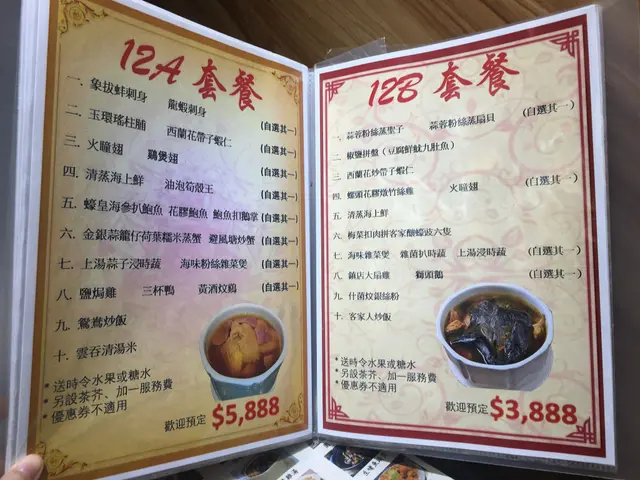 12A 套餐
一. 象拔蚌刺身 龍蝦刺身 (自選其一)
二. 玉環瑤柱脯 西蘭花帶子蝦仁 (自選其一)
三. 火瞳翅 鷄煲翅 (自選其一)
四. 清蒸海上鮮 油泡筍殼王 (自選其一)
五. 蠔皇海參扒鮑魚 花膠鮑魚 鮑魚扣鵝掌 (自選其一)
六. 金銀蒜籠仔荷葉糯米蒸蟹 避風塘炒蟹 (自選其一)
七. 上湯蒜子浸時蔬 海味粉絲雜菜煲 (自選其一)
八. 鹽焗雞 三杯鴨 黃酒炆鷄 (自選其一)
九. 鴛鴦炒飯
十. 雲吞清湯米
* 送時令水果或糖水
* 另設茶芥、加一服務費
* 優惠券不適用
歡迎預定 $5,888
12B 套餐
一. 蒜蓉粉絲蒸聖子 蒜蓉粉絲蒸扇貝 (自選其一)
二. 椒鹽拼盤（豆腐鮮魷九肚魚）
三. 西蘭花炒帶子蝦仁
四. 螺頭花膠燉竹絲雞 火瞳翅 (自選其一)
五. 清蒸海上鮮
六. 梅菜扣肉拼客家釀蠔豉六隻
七. 海味雜菜煲 雜菌扒時蔬 上湯浸時蔬 (自選其一)
八. 鎮店大扇雞 獅頭鵝 (自選其一)
九. 什菌炆銀絲粉
十. 客家人炒飯
* 送時令水果或糖水
* 另設茶芥、加一服務費
* 優惠券不適用
歡迎預定 $3,888